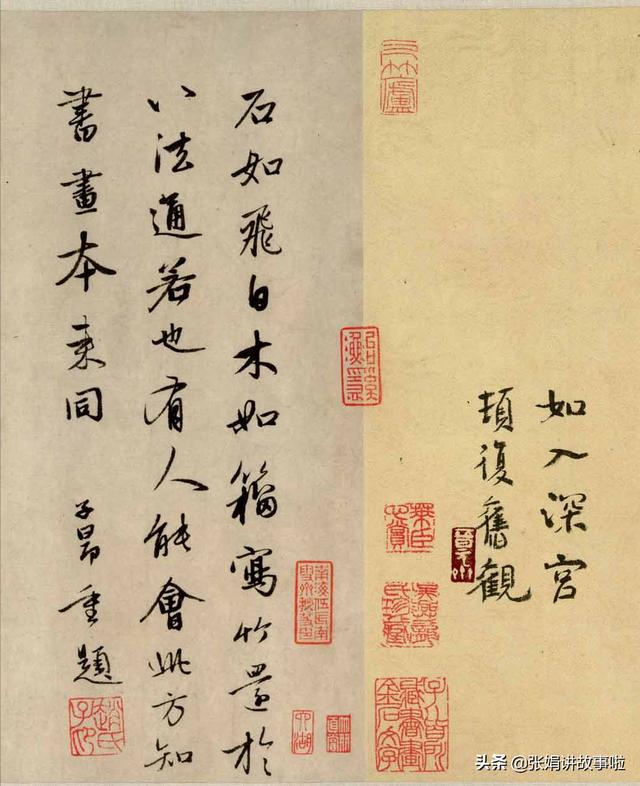 如入深宮
頓復舊觀
石如飛白木如籀寫竹還於
八法通若也有人能會此方知
書畫本來同 子昂重題
趙氏子昂
头条 @张娟讲故事啦